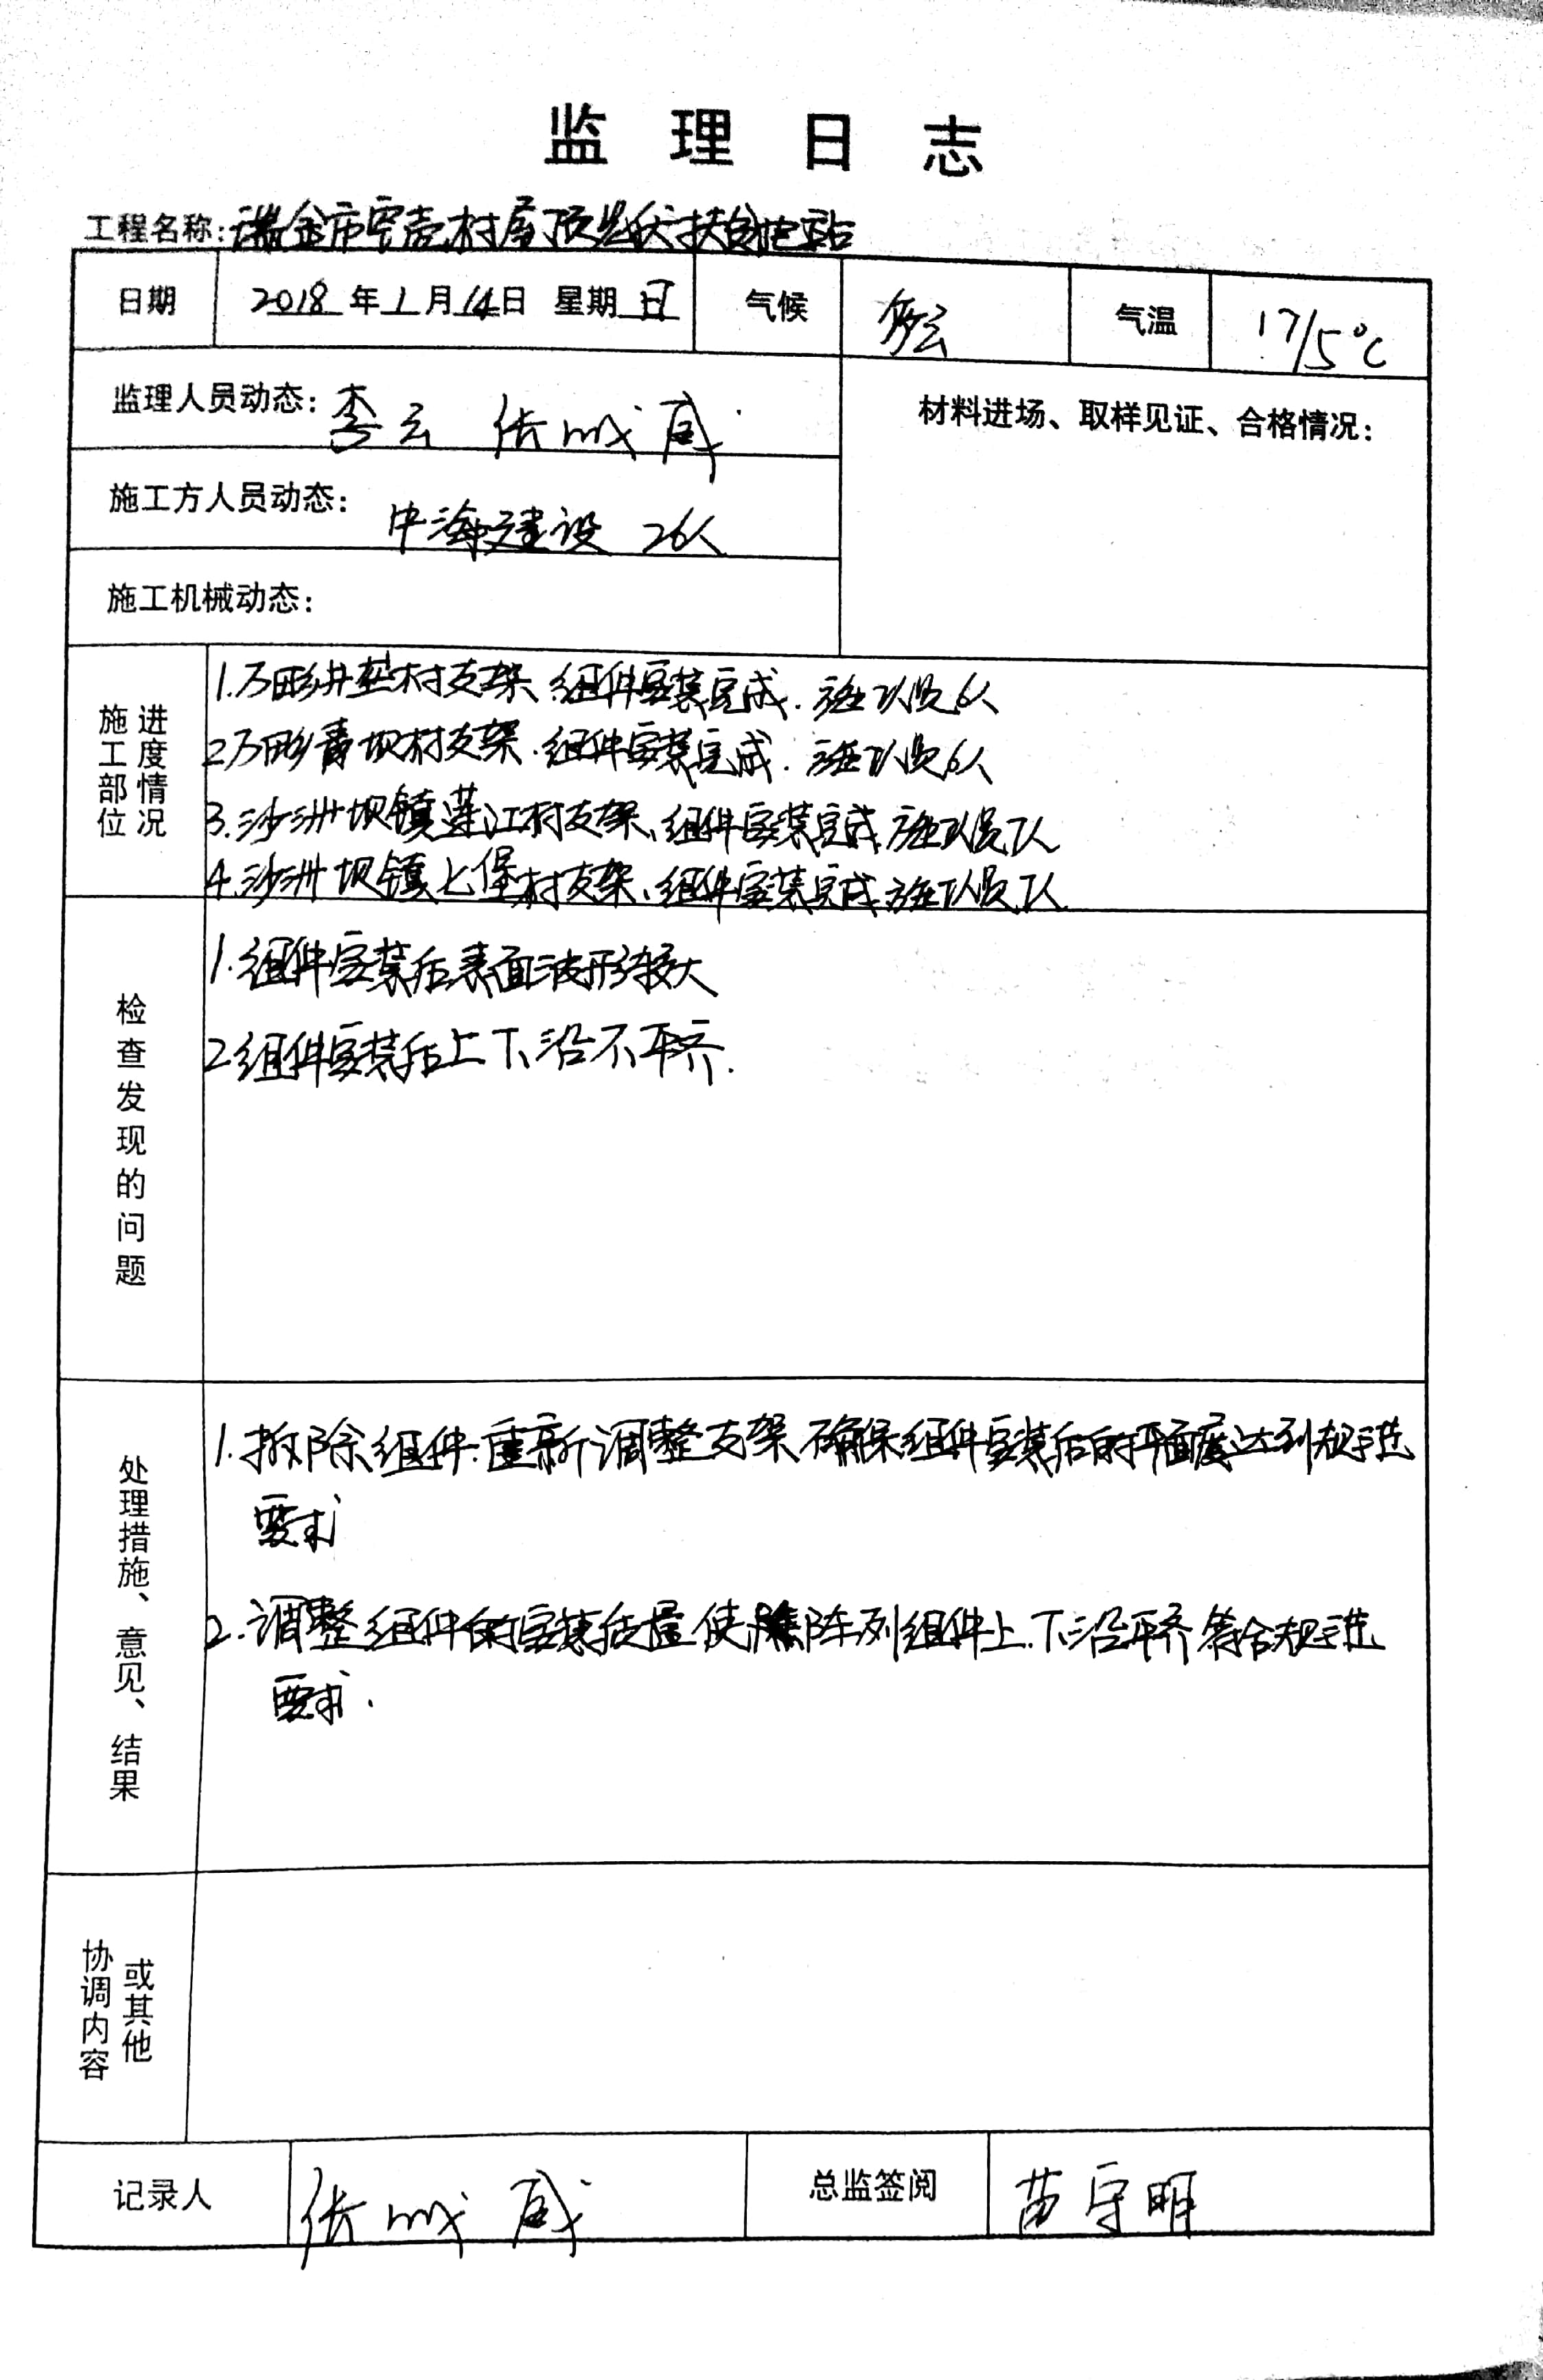 监理日志
工程名称:瑞金市空壳村屋顶光伏扶贫电站
日期 2018年1月14日 星期日 气候 多云 气温 17/5℃
监理人员动态: 李云 张 威
材料进场、取样见证、合格情况:
施工方人员动态: 中海建设 26人
施工机械动态:
施工部位 进度情况
1.万田乡 村支架、组件安装完成. 施工人员6人
2.万田乡 坝村支架.组件安装完成. 施工人员6人
3.沙洲坝镇 江村支架、组件安装完成.施工人员7人
4.沙洲坝镇七堡村支架、组件安装完成.施工人员7人
检查发现的问题
1.组件安装后表面波形较大
2.组件安装后上下沿不平齐.
处理措施、意见、结果
1.拆除组件.重新调整支架.确保组件安装后的平面度达到规范
要求
2.调整组件的安装质量使 阵列组件上.下沿平齐符合规范
要求.
协调内容 或其他
记录人 张 威 总监签阅 苗守明